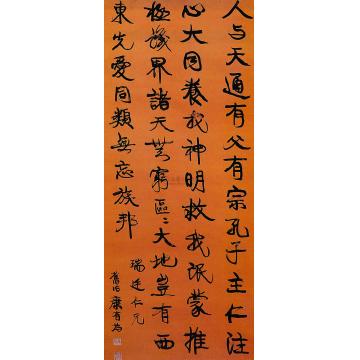 人与天通有父有宗孔子主仁注
心大同養我神明救我氓蒙推
極幾界諸天無窮區二大地豈有西
東先愛同類無忘族邦
瑞廷仁兄
舊作康有為